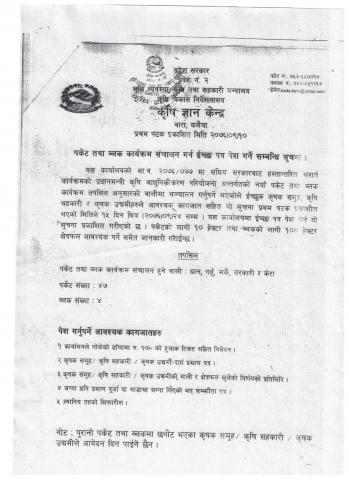 प्रदेश सरकार
प्रदेश नं. २
भूमि व्यवस्था, कृषि तथा सहकारी मन्त्रालय
कृषि विकास निर्देशनालय
कृषि ज्ञान केन्द्र
बारा, कलैया
प्रथम पटक प्रकाशित मिति २०७६।०९।१०
पकेट तथा ब्लक कार्यक्रम संचालन गर्न ईच्छा पत्र पेश गर्ने सम्बन्धि सुचना ।
यस कार्यालयको आ.व. २०७६/०७७ मा संघिय सरकारबाट हस्तान्तरित सशर्त
कार्यक्रमको प्रधानमन्त्री कृषि आधुनिकीकरण परियोजना अन्तर्गतको नयाँ पकेट तथा ब्लक
कार्यक्रम तपसिल अनुसारको बालीमा सन्चालन गर्नुपर्ने भएकोले ईच्छुक कृषक समुह, कृषि
सहकारी र कृषक उद्यमीहरुले आवश्यक कागजात सहित यो सुचना प्रथम पटक प्रकाशीत
भएको मितिले १५ दिन भित्र (२०७६।०९।२४ सम्म ) यस कार्यालयमा ईच्छा पत्र पेश गर्न यो
सुचना प्रकाशित गरीएको छ । पकेटको लागी १० हेक्टर तथा ब्लकको लागी १०० हेक्टर
क्षेत्रफल आवश्यक पर्ने समेत जानकारी गराईन्छ ।
तपसिल
पकेट तथा ब्लक कार्यक्रम संचालन हुने बाली : धान, गहुँ, मकै, तरकारी र केरा
पकेट संख्या : ४७
ब्लक संख्या : ४
पेश गर्नुपर्ने आवश्यक कागजातहरु
१ कार्यालयले तोकेको ढाँचामा रु. १०।- को हुलाक टिकट सहित निवेदन ।
२ कृषक समुह/ कृषि सहकारी / कृषक उद्यमी दर्ता प्रमाण पत्र ।
३ कृषक समुह/ कृषि सहकारी / कृषक उद्यमीको बाली र क्षेत्रफल खुलेको निर्णयको प्रतिलिपि ।
४ जग्गा धनि प्रमाण पुर्जा वा भाडामा जग्गा लिएको भए सम्झौता पत्र ।
५ स्थानिय तहको सिफारीस ।
नोट : पुरानो पकेट तथा ब्लकमा छनौट भएका कृषक समुह/ कृषि सहकारी / कृषक
उद्यमीले आवेदन दिन पाईने छैन ।